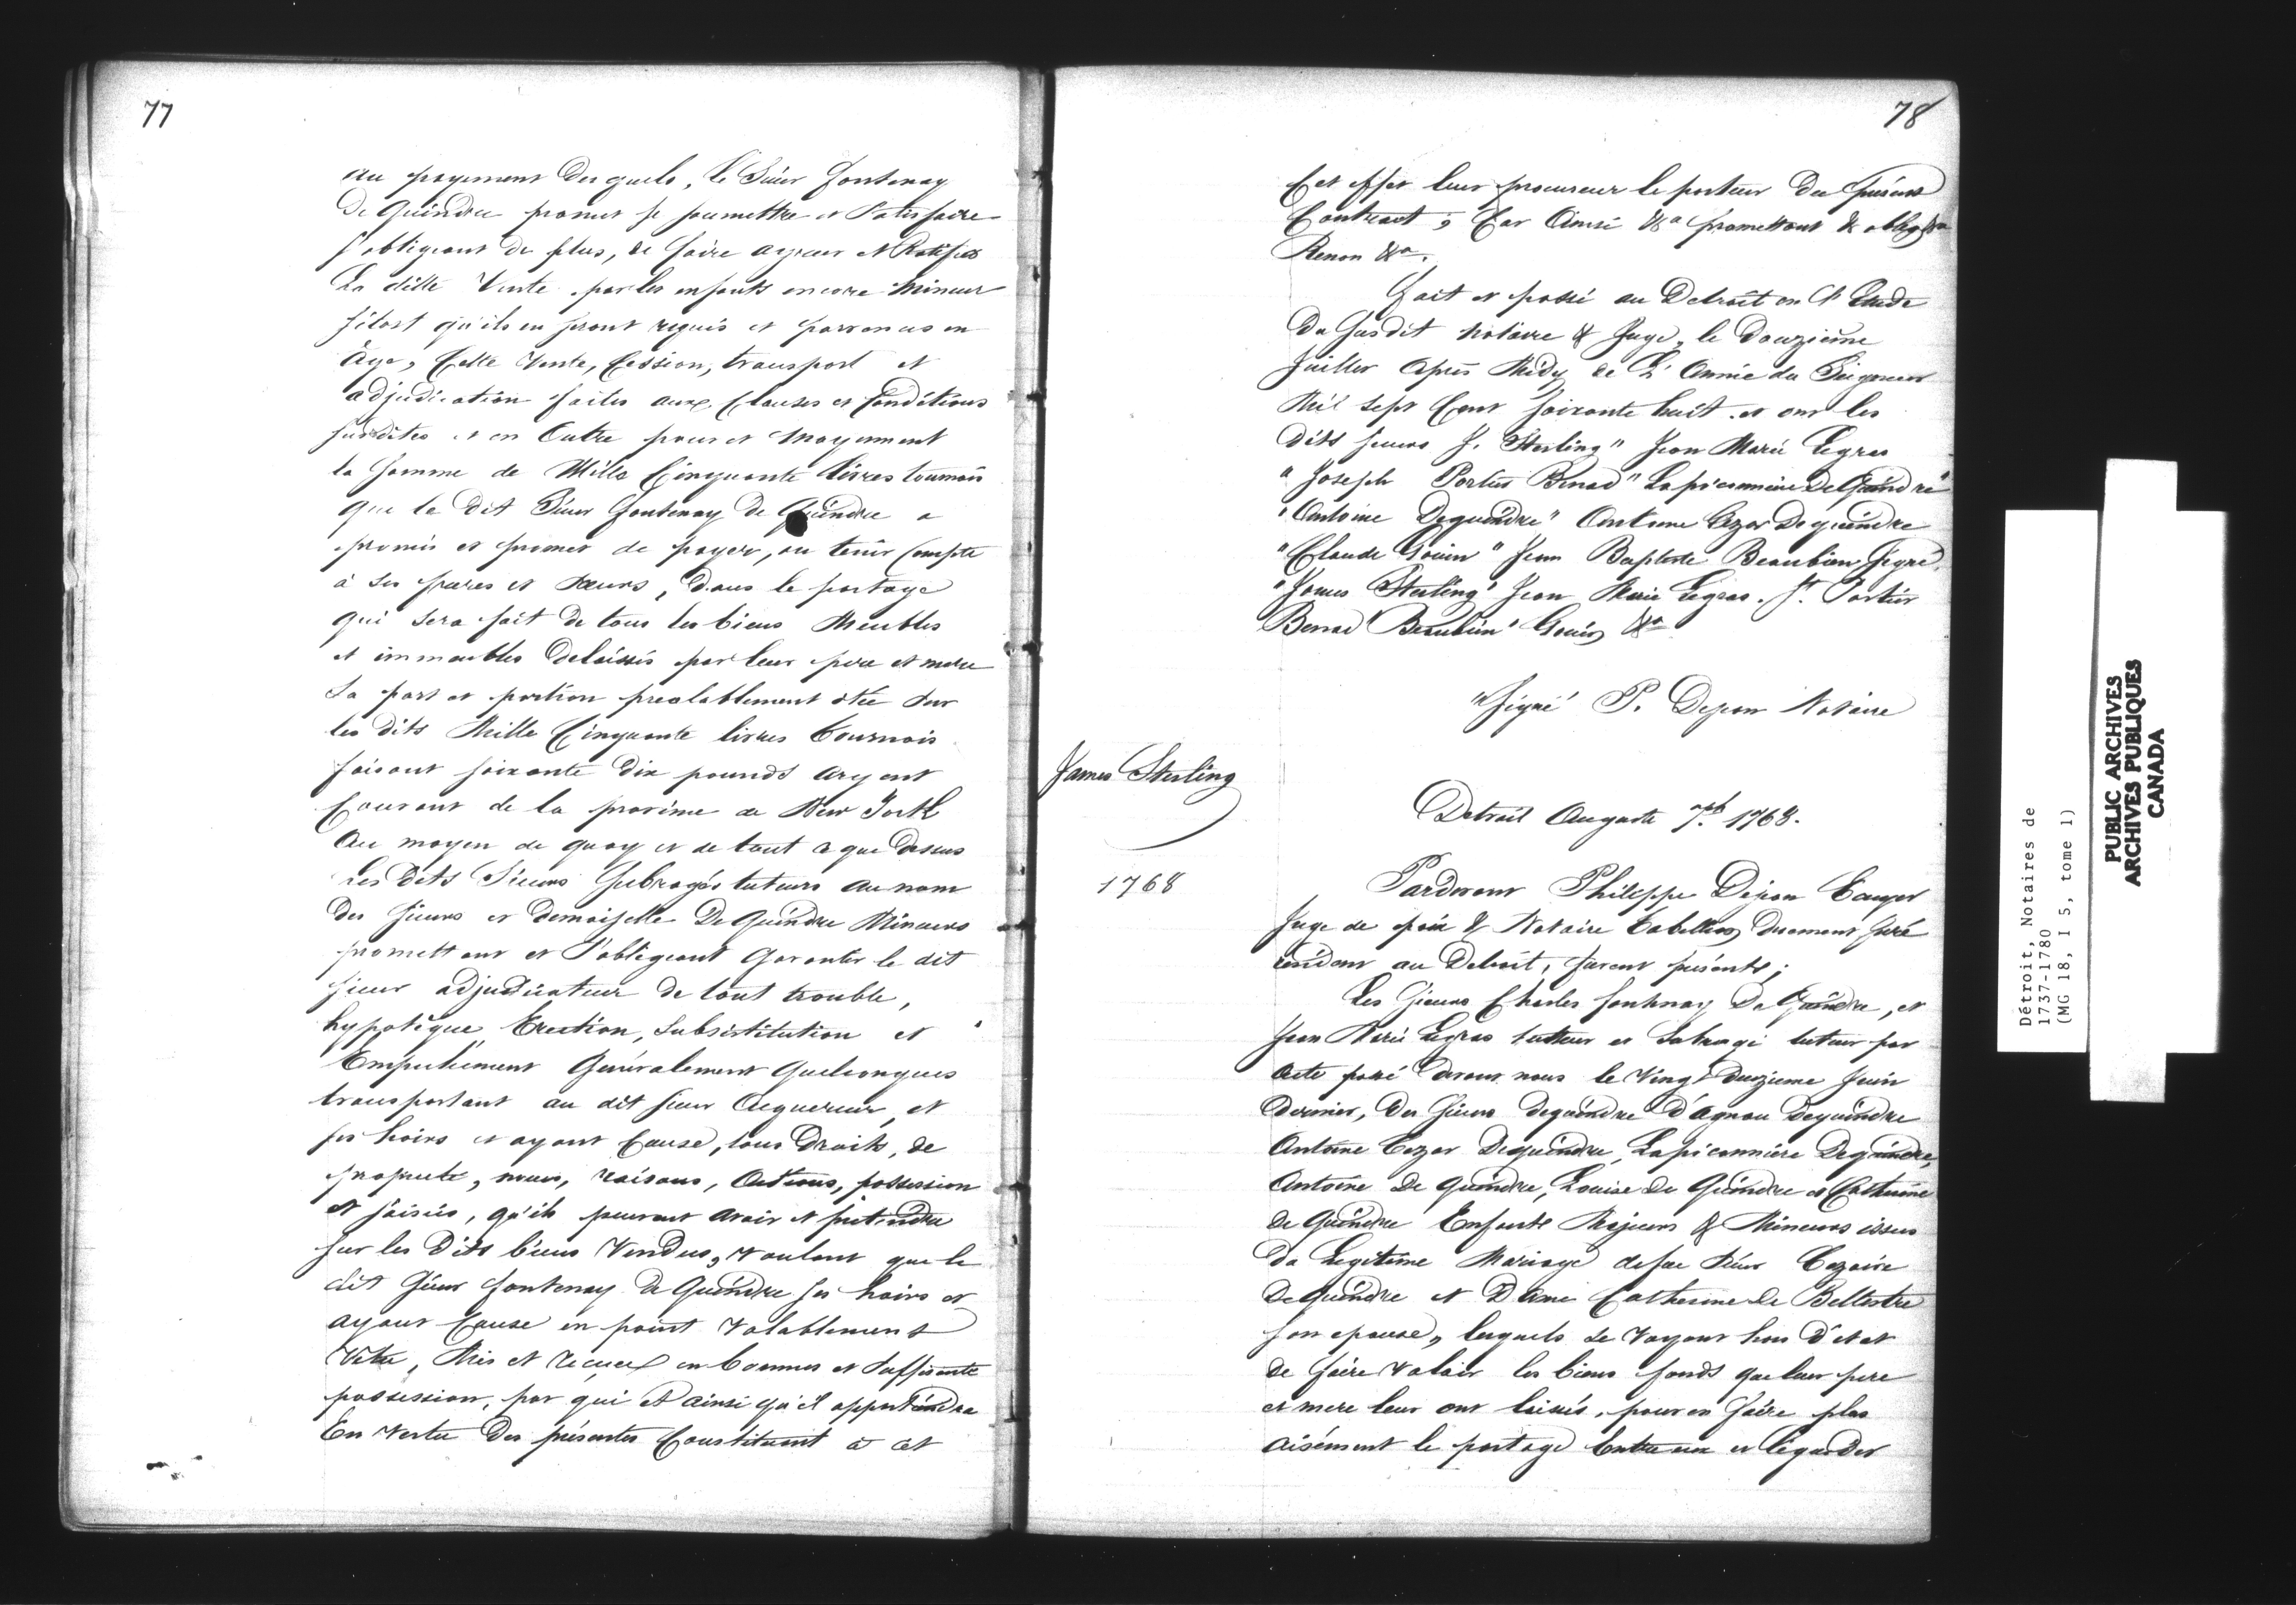 77
au payement desquels, le Sieur fontenay
De Quindre promet se soumettre et Satisfaire
s'obligeant de plus, de faire agréer et Ratifier
La ditte Vente par les enfants encore Mineur
sitost qu'ils en seront requis et parvenus en
âge, Cette Vente, Cession, transport et
adjudication faites aux Clauses et Conditions
susdites et en Outre pour et Moyennent
la Somme de Mille Cinquante livres tournois
que le Dit Sieur fontenay de Quindre a
promis et promet de payer, ou tenir Compte
à ses freres et sœurs, Dans le partage
qui sera fait de tous les biens Meubles
et immeubles Delaissés par leur pere et mere
Sa part et portion prealablement otée sur
les dits Mille Cinquante livres tournois
faisant soixante dix pounds argent
Courant de la province de New York
Au moyen de quoy et de tout ce que dessus
Les Dits Sieurs Subrogés tuteurs au nom
Des Sieurs et Demoiselle De Quindre Mineurs
promettent et S'obligeant Garantir le dit
sieur adjudicateur de tout trouble,
hypotèque Eviction, Subsistitution et
Empechement Généralement Quelconques
transportant au dit sieur Acquereur, et
ses hoirs et ayant Cause, tous Droits, de
propriete, noms, raisons, Actions, possession
et saisies, qu'ils peuvent avoir et pretendre
sur les Dits biens Vendus, Voulant que le
dit Sieur fontenay De Quindre ses hoirs et
ayant Cause en point Valablement
Vetu, Mis et reçuee en bonnes et Suffisante
possession, par qui et ainsi qu'il appartiendra
En Vertu Des présentes Constituant à cet
78
Cet effet leur procureur le porteur Du Présent
Contract; Car Ainsi &a promettant & oblig &a
Renon &a.
Fait et passé au Detroit en l'Etude
Du Susdit Notaire & Juge, le Douzieme
Juillet Après Midy de L'Année du Seigneur
Mil sept Cent soixante huit et ont les
Dits sieurs J. Sterling" Jean Marie Legras
" Joseph Portier Benac" Lapicanniere DeQuindre"
"Antoine Dequindre" Antoine Cezar Dequindre
"Claude Gouin" Jean Baptiste Beaubien signé,
"James Sterling" Jean Marie Legras. Jh. Portier
Benac" Beaubien" Gouin &a
"Signé" P. Dejean Notaire
James Sterling
1768
Detroit Auguste 7th 1768.
Pardevant Philippe Dejean Ecuyer
Juge de paix & Notaire tabellion Duement juré
residant au Detroit, furent présents;
Les Sieurs Charles fontenay De Quindre, et
Jean Marie Legras tutteur et Subrogé tuteur par
Acte passé devant nous le Vingt Deuzieme Juin
Dernier, Des Sieurs Dequindre D'agnau Dequindre
Antoine Cezar Dequindre, Lapicanniere Dequindre,
Antoine De Quindre, Louise De Quindre et Catherine
De Quindre Enfants Majeurs & Mineurs issus
Du Legitime Mariage defue Sieur Cezaire
De Quindre et Dame Catherine de Bellestre
son epouse, lesquels se voyant hors d'etat
de faire Valoir les biens fonds que leur pere
et mere leur ont laissés, pour en faire plus
aisément le partage Entre eux et
Détroit, Notaires de
1737-1780
(MG 18, I 5, tome 1)
PUBLIC ARCHIVES
ARCHIVES PUBLIQUES
CANADA